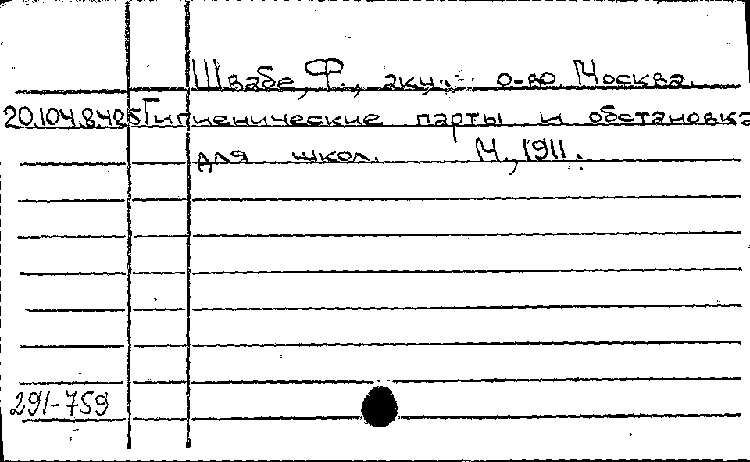 Швабе, Ф., акц. о-во. Москва.
20.104.8.425 Гигиенические парты и обстановка
для школ. М., 1911.
291-759